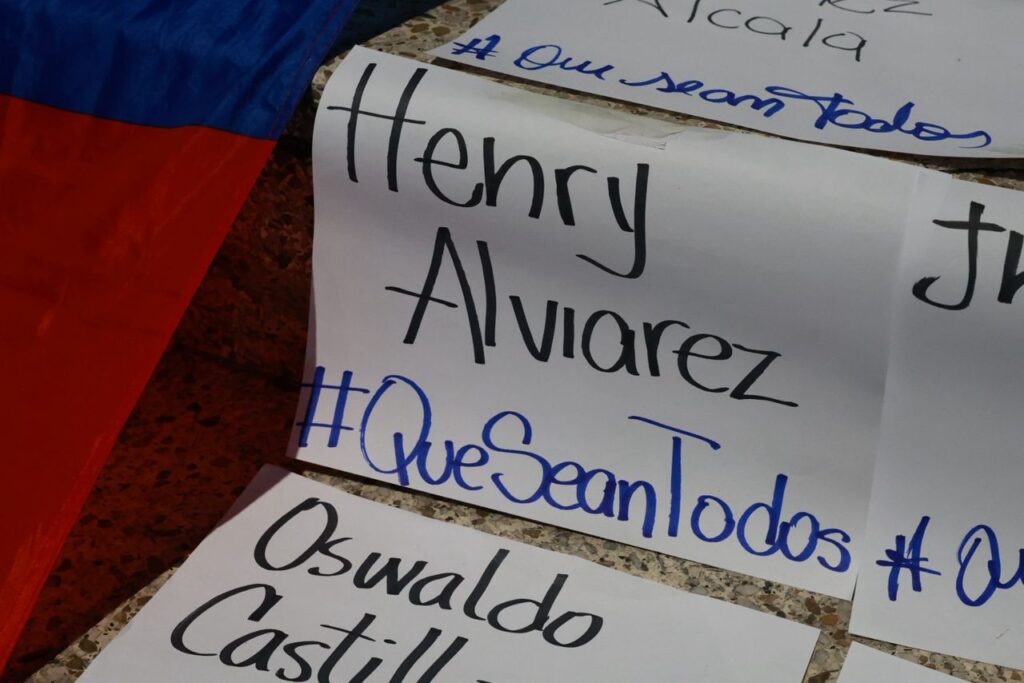 ez
Alcala
#Que sean Todos
Henry
Alviarez
#QueSeanTodos
#Qu
Oswaldo
Castill